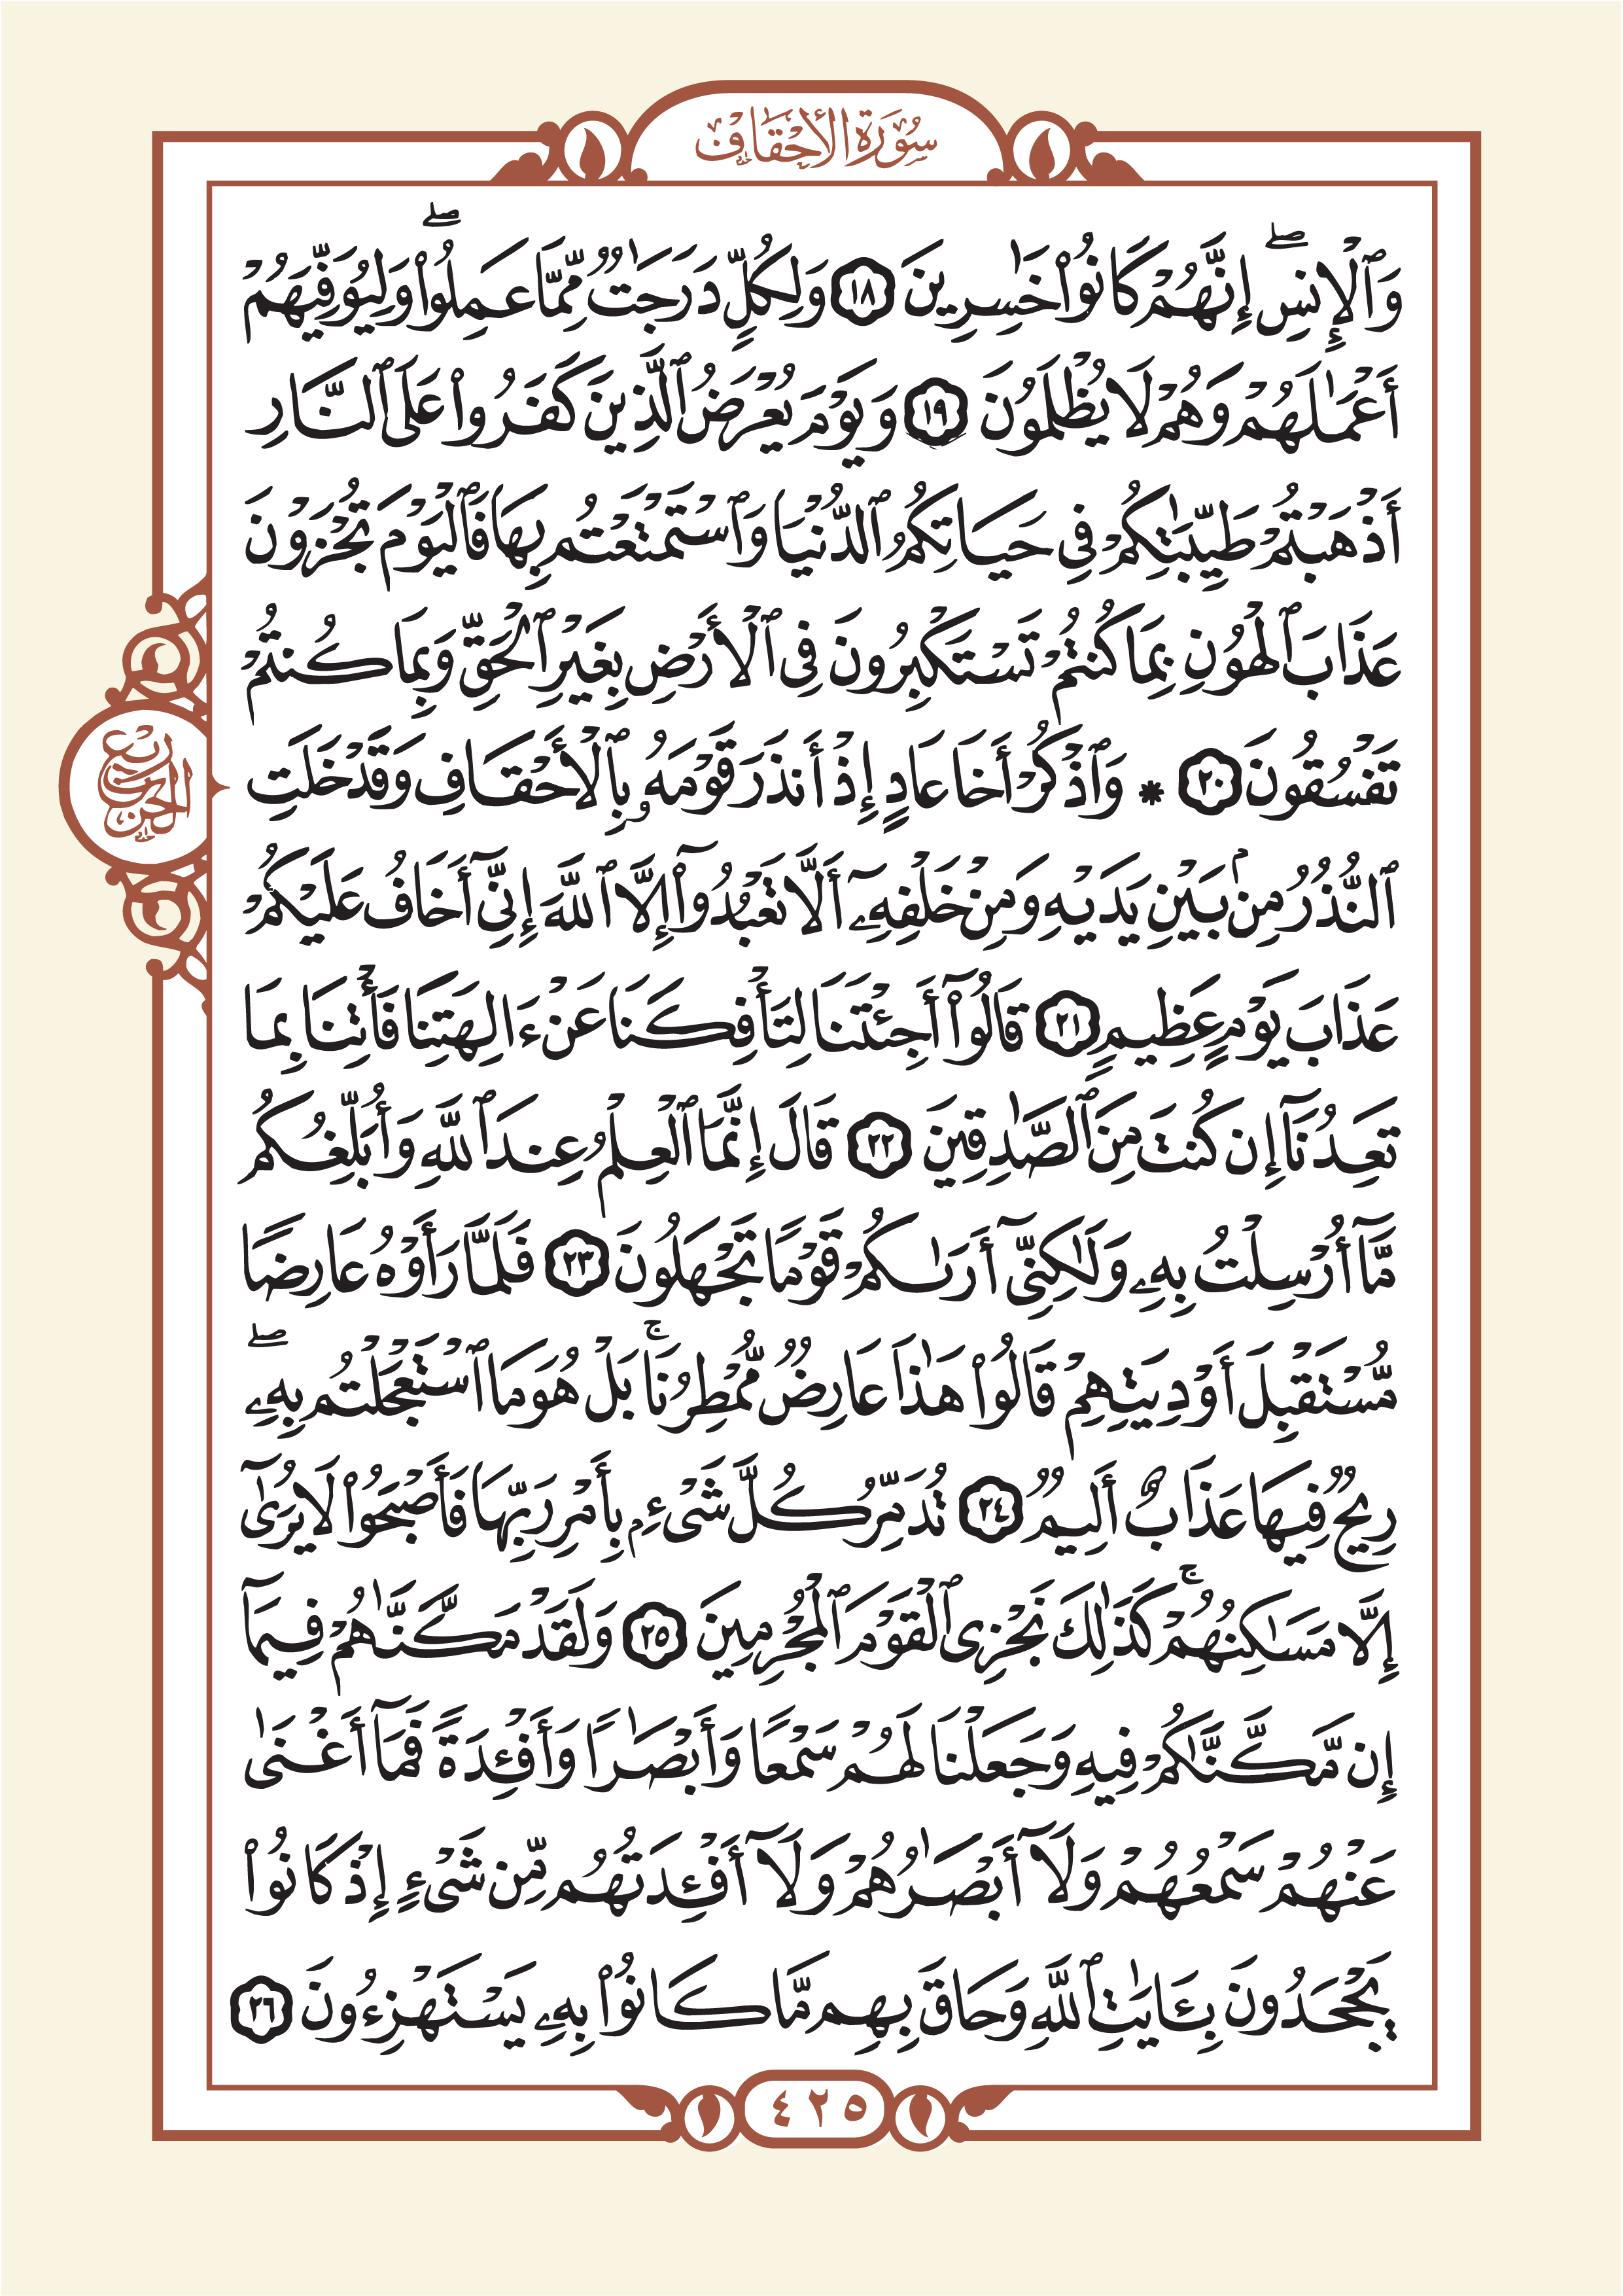 سُورَةُ الأَحْقَافِ
وَٱلْإِنسِۖ إِنَّهُمْ كَانُوا۟ خَـٰسِرِينَ ١٨ وَلِكُلٍّ دَرَجَـٰتٌ مِّمَّا عَمِلُوا۟ۖ وَلِيُوَفِّيَهُمْ
أَعْمَـٰلَهُمْ وَهُمْ لَا يُظْلَمُونَ ١٩ وَيَوْمَ يُعْرَضُ ٱلَّذِينَ كَفَرُوا۟ عَلَى ٱلنَّارِ
أَذْهَبْتُمْ طَيِّبَـٰتِكُمْ فِى حَيَاتِكُمُ ٱلدُّنْيَا وَٱسْتَمْتَعْتُم بِهَا فَٱلْيَوْمَ تُجْزَوْنَ
عَذَابَ ٱلْهُونِ بِمَا كُنتُمْ تَسْتَكْبِرُونَ فِى ٱلْأَرْضِ بِغَيْرِ ٱلْحَقِّ وَبِمَا كُنتُمْ
تَفْسُقُونَ ٢٠ * وَٱذْكُرْ أَخَا عَادٍ إِذْ أَنذَرَ قَوْمَهُۥ بِٱلْأَحْقَافِ وَقَدْ خَلَتِ
رُبْعُ الحِزْبِ
ٱلنُّذُرُ مِنۢ بَيْنِ يَدَيْهِ وَمِنْ خَلْفِهِۦٓ أَلَّا تَعْبُدُوٓا۟ إِلَّا ٱللَّهَ إِنِّىٓ أَخَافُ عَلَيْكُمْ
عَذَابَ يَوْمٍ عَظِيمٍ ٢١ قَالُوٓا۟ أَجِئْتَنَا لِتَأْفِكَنَا عَنْ ءَالِهَتِنَا فَأْتِنَا بِمَا
تَعِدُنَآ إِن كُنتَ مِنَ ٱلصَّـٰدِقِينَ ٢٢ قَالَ إِنَّمَا ٱلْعِلْمُ عِندَ ٱللَّهِ وَأُبَلِّغُكُم
مَّآ أُرْسِلْتُ بِهِۦ وَلَـٰكِنِّىٓ أَرَىٰكُمْ قَوْمًا تَجْهَلُونَ ٢٣ فَلَمَّا رَأَوْهُ عَارِضًا
مُّسْتَقْبِلَ أَوْدِيَتِهِمْ قَالُوا۟ هَـٰذَا عَارِضٌ مُّمْطِرُنَاۚ بَلْ هُوَ مَا ٱسْتَعْجَلْتُم بِهِۦۖ
رِيحٌ فِيهَا عَذَابٌ أَلِيمٌ ٢٤ تُدَمِّرُ كُلَّ شَىْءِۭ بِأَمْرِ رَبِّهَا فَأَصْبَحُوا۟ لَا يُرَىٰٓ
إِلَّا مَسَـٰكِنُهُمْۚ كَذَٰلِكَ نَجْزِى ٱلْقَوْمَ ٱلْمُجْرِمِينَ ٢٥ وَلَقَدْ مَكَّنَّـٰهُمْ فِيمَآ
إِن مَّكَّنَّـٰكُمْ فِيهِ وَجَعَلْنَا لَهُمْ سَمْعًا وَأَبْصَـٰرًا وَأَفْـِٔدَةً فَمَآ أَغْنَىٰ
عَنْهُمْ سَمْعُهُمْ وَلَآ أَبْصَـٰرُهُمْ وَلَآ أَفْـِٔدَتُهُم مِّن شَىْءٍ إِذْ كَانُوا۟
يَجْحَدُونَ بِـَٔايَـٰتِ ٱللَّهِ وَحَاقَ بِهِم مَّا كَانُوا۟ بِهِۦ يَسْتَهْزِءُونَ ٢٦
٤٢٥